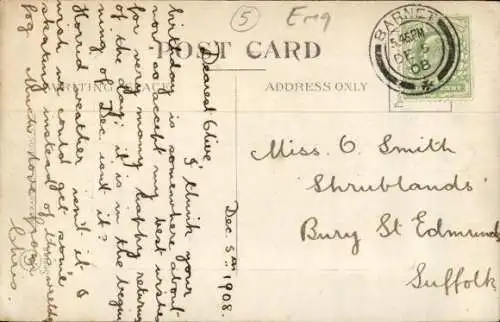 5
Eng
POST CARD
WRITING
ADDRESS ONLY
BARNET
5.45PM
DE 5
08
Dec 5th 1908.
Dearest Olive,
I think your
birthday is somewhere about
now so accept my best wishes
for very many happy returns
of the day; it is in the begin
ning of Dec. isn't it?
Horrid weather isn't it I
wish we could get some
skating instead of this wretched
fog. Much love from
Chris
Miss O. Smith
'Shrublands'
Bury St Edmunds
Suffolk